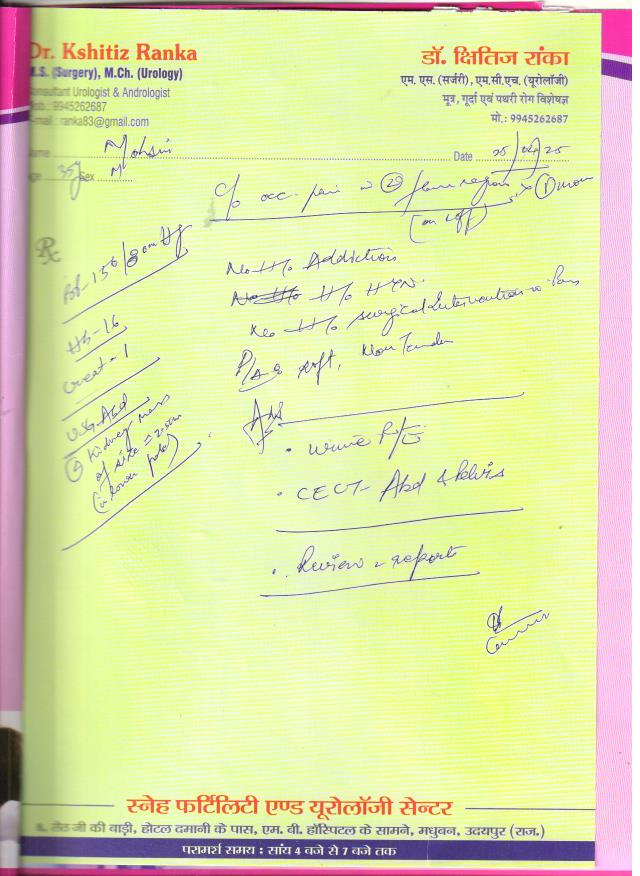 Dr. Kshitiz Ranka
M.S. (Surgery), M.Ch. (Urology)
Consultant Urologist & Andrologist
Mob.: 9945262687
E-mail : ranka83@gmail.com
डॉ. क्षितिज रांका
एम. एस. (सर्जरी), एम.सी.एच. (यूरोलॉजी)
मूत्र, गूर्दा एवं पथरी रोग विशेषज्ञ
मो.: 9945262687
Name Mohsin
Date 25/04/25
Age 35y Sex M
c/o occ. pain flank region
(on/off)
Rx
BP-150/80mmHg
Hb-16
Creat-1
USG-Abd
Kidney mass
of size
(in lower pole)
No H/o Addiction
H/o HTN
No H/o surgical intervention in Past
P/A soft, Non Tender
Adv
• Urine R/E
• CECT- Abd & Pelvis
• Review reports
स्नेह फर्टिलिटी एण्ड यूरोलॉजी सेन्टर
सेठ जी की बाड़ी, होटल दमानी के पास, एम. बी. हॉस्पिटल के सामने, मधुबन, उदयपुर (राज.)
परामर्श समय : सांय 4 बजे से 7 बजे तक